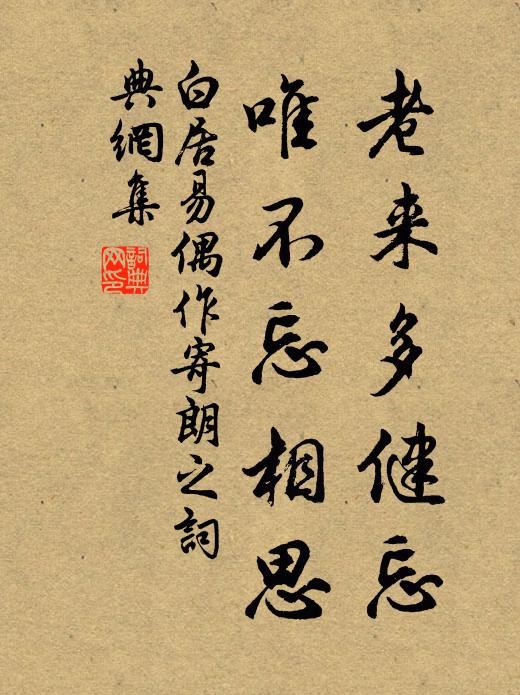 老来多健忘
唯不忘相思
白居易偶作寄朗之詞
典網集
詞典
网印